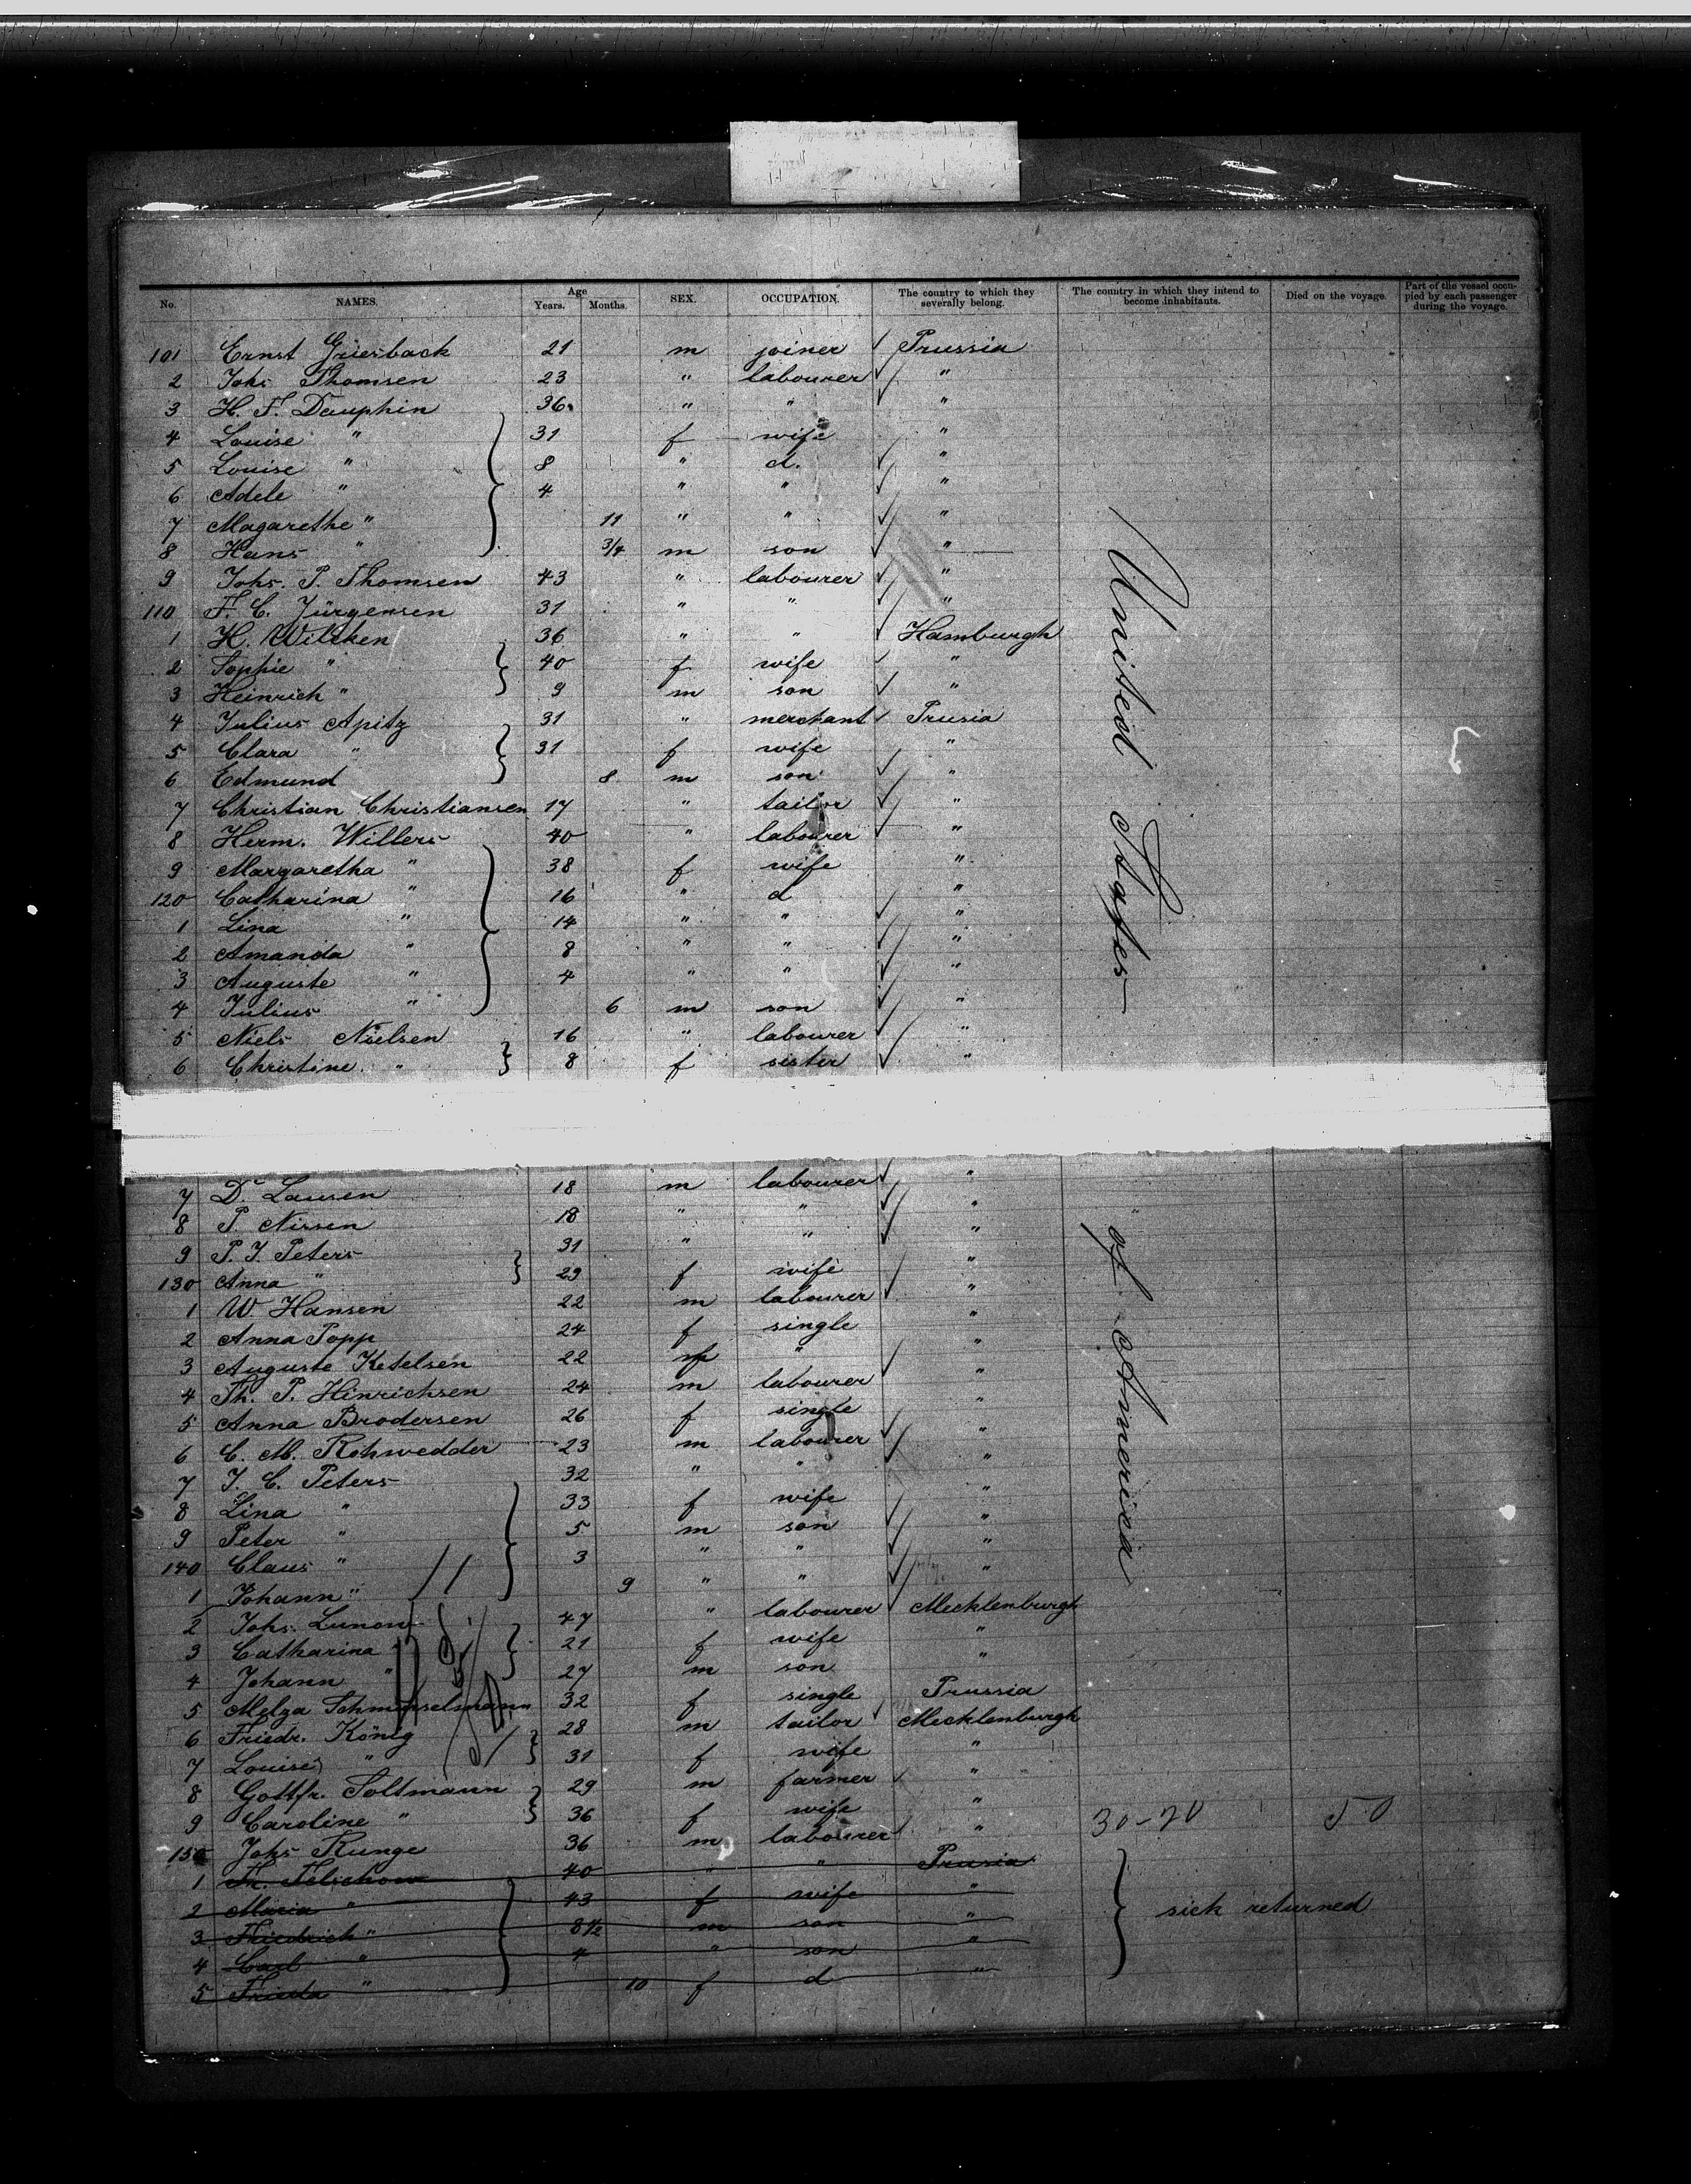 No. NAMES. Age Years. Months. SEX. OCCUPATION. The country to which they severally belong. The country in which they intend to become inhabitants. Died on the voyage. Part of the vessel occupied by each passenger during the voyage.
101 Ernst Griesback 21 m joiner Prussia
2 Johs Thomsen 23 " labourer "
3 H. F. Dauphin 36 " " "
4 Louise " 31 f wife "
5 Louise " 8 " d. "
6 Adele " 4 " " "
7 Magarethe " 11 " " "
8 Hans " 3/4 m son "
9 Johs. P. Thomsen 43 " labourer "
110 F. C. Jürgensen 31 " " "
1 H. Wilcken 36 " " Hamburgh
2 Sophie " 40 f wife "
3 Heinrich " 9 m son "
4 Julius Apitz 31 " merchant Prusia
5 Clara " 31 f wife "
6 Edmund 8 m son "
7 Christian Christiansen 17 " tailor "
8 Herm. Willers 40 " labourer "
9 Margaretha " 38 f wife "
120 Catharina " 16 " d "
1 Lina " 14 " " "
2 Amanda " 8 " " "
3 Auguste 4 " " "
4 Julius " 6 m son "
5 Niels Nielsen 16 " labourer "
6 Christine " 8 f sister "
United States
7 D. Lausen 18 m labourer "
8 P. Nissen 18 " " "
9 P. J. Peters 31 " " "
130 Anna " 29 f wife "
1 W. Hansen 22 m labourer "
2 Anna Popp 24 f single "
3 Auguste Ketelsen 22 f " "
4 Th. P. Hinrichsen 24 m labourer "
5 Anna Brodersen 26 f single "
6 C. M. Rohwedder 23 m labourer "
7 J. C. Peters 32 " " "
8 Lina " 33 f wife "
9 Peter " 5 m son "
140 Claus " 3 " " "
1 Johann " 9 " " "
2 Johs. Lunow 47 " labourer Mecklenburgh
3 Catharina 21 f wife "
4 Johann " 27 m son "
5 Melza 32 f single Prussia
6 Friedr. König 28 m tailor Mecklenburgh
7 Louise " 31 f wife "
8 Gottfr. Soltmann 29 m farmer "
9 Caroline " 36 f wife "
150 Johs Runge 36 m labourer "
1 Fr. Telschow 40 " " Prusia
2 Maria " 43 f wife "
3 Friedrich " 8 1/2 m son "
4 Carl " 4 " son "
5 Frieda " 10 f d "
of America
30-20 50
sick returned